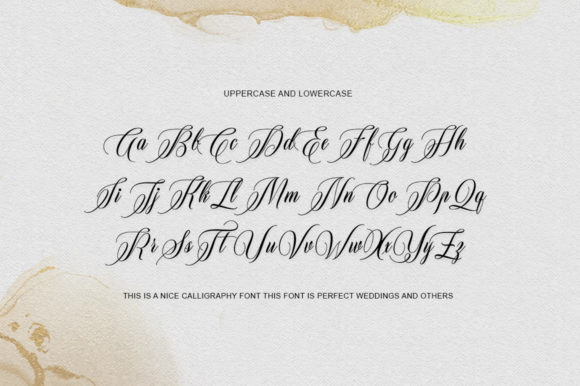 UPPERCASE AND LOWERCASE
Aa Bb Cc Dd Ee Ff Gg Hh
Ii Jj Kk Ll Mm Nn Oo Pp Qq
Rr Ss Tt Uu Vv Ww Xx Yy Zz
THIS IS A NICE CALLIGRAPHY FONT THIS FONT IS PERFECT WEDDINGS AND OTHERS